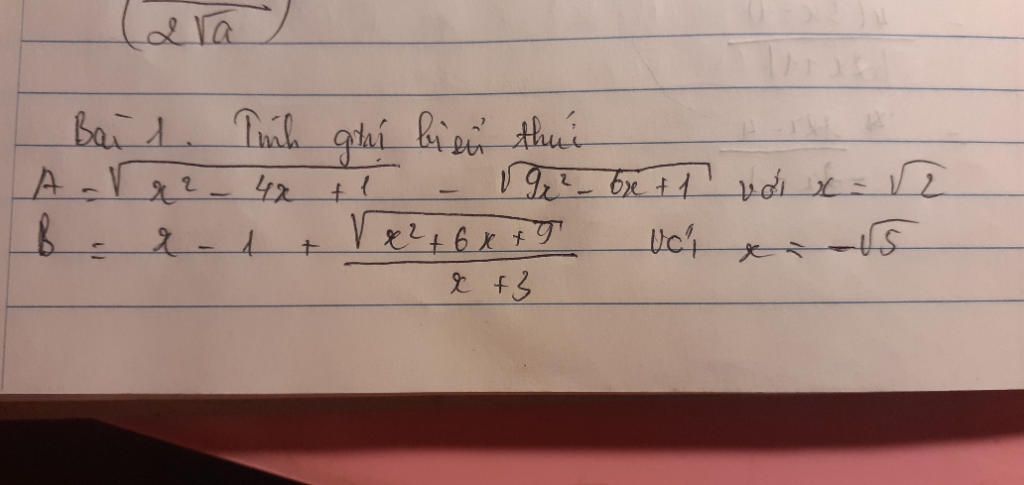 (2√a)
Bài 1. Tính gtrị biểu thức
A = √(x² - 4x + 1) - √(9x² - 6x + 1) với x = √2
B = x - 1 + √(x² + 6x + 9) / (x + 3) với x = -√5